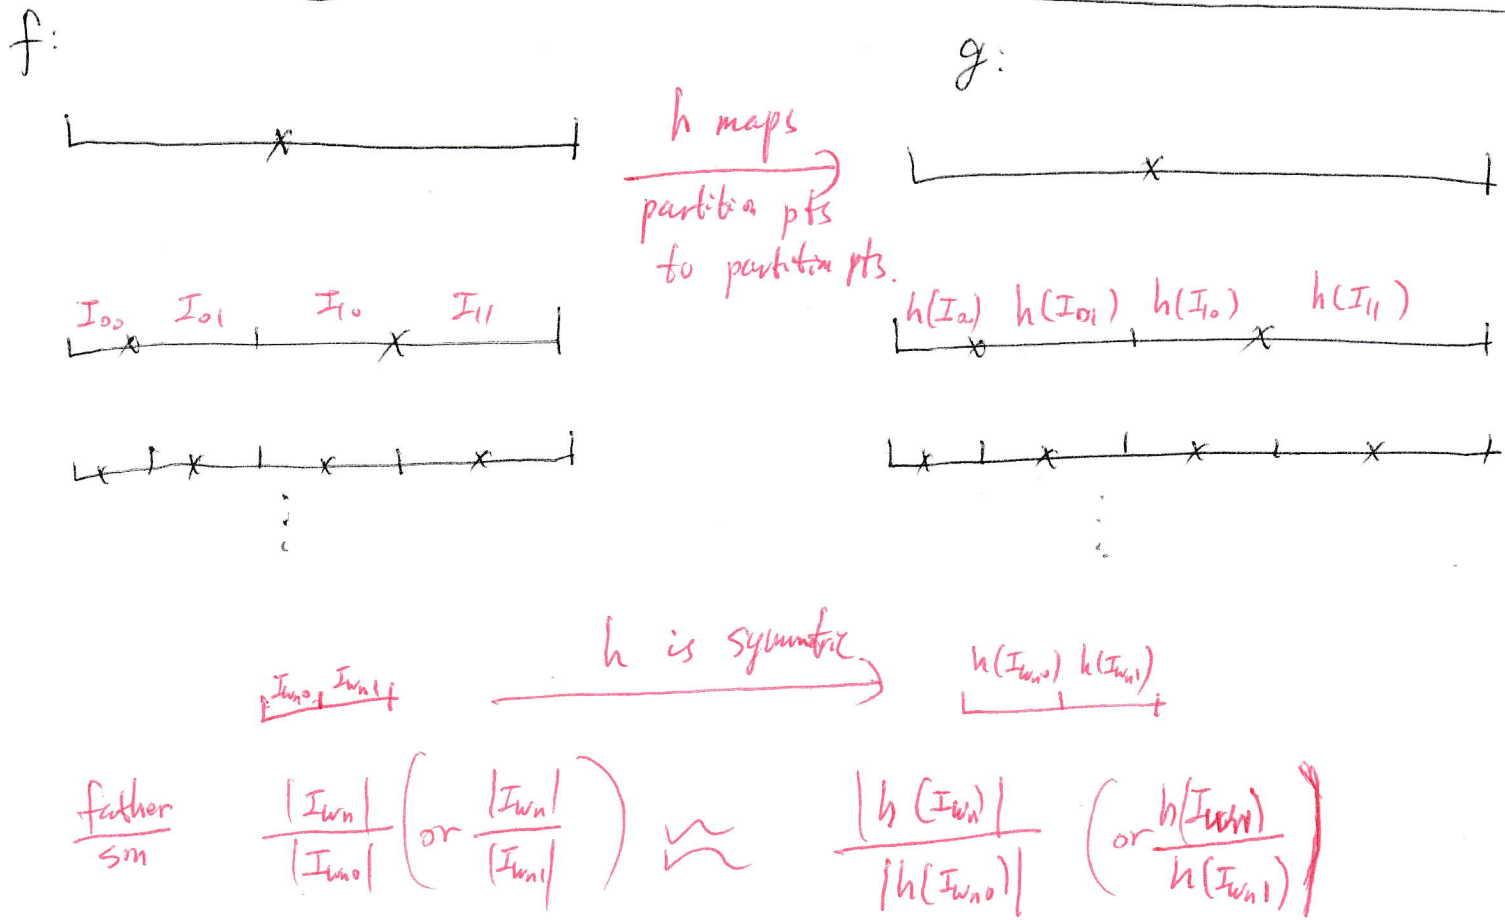 f:
g:
h maps
partition pts
to partition pts.
I₀₀ I₀₁ I₁₀ I₁₁
h(I₀₀) h(I₀₁) h(I₁₀) h(I₁₁)
h is symmetric
I_{wn0} I_{wn1}
h(I_{wn0}) h(I_{wn1})
father/son |I_{wn}|/|I_{wn0}| (or |I_{wn}|/|I_{wn1}|) ≈ |h(I_{wn})|/|h(I_{wn0})| (or h(I_{wn})/h(I_{wn1}))